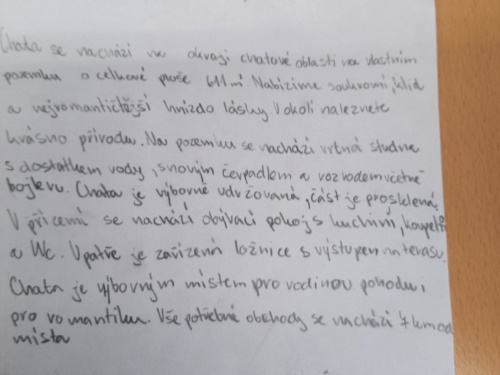 Chata se nachází na okraji chatové oblasti na vlastním
pozemku o celkové ploše 611 m². Nabízíme soukromí, klid
a nejromantičtější hnízdo lásky. V okolí naleznete
krásno přírodu. Na pozemku se nachází vrtná studna
s dostatkem vody, s novým čerpadlem a rozvodem včetně
bojleru. Chata je výborně udržovaná, část je prosklená.
V přízemí se nachází obývací pokoj s kuchyní, koupel
a Wc. V patře je zařízená ložnice s výstupem na terasu.
Chata je výborným místem pro rodinou pohodu i
pro romantiku. Vše potřebné obchody se nachází 7 km od
místa